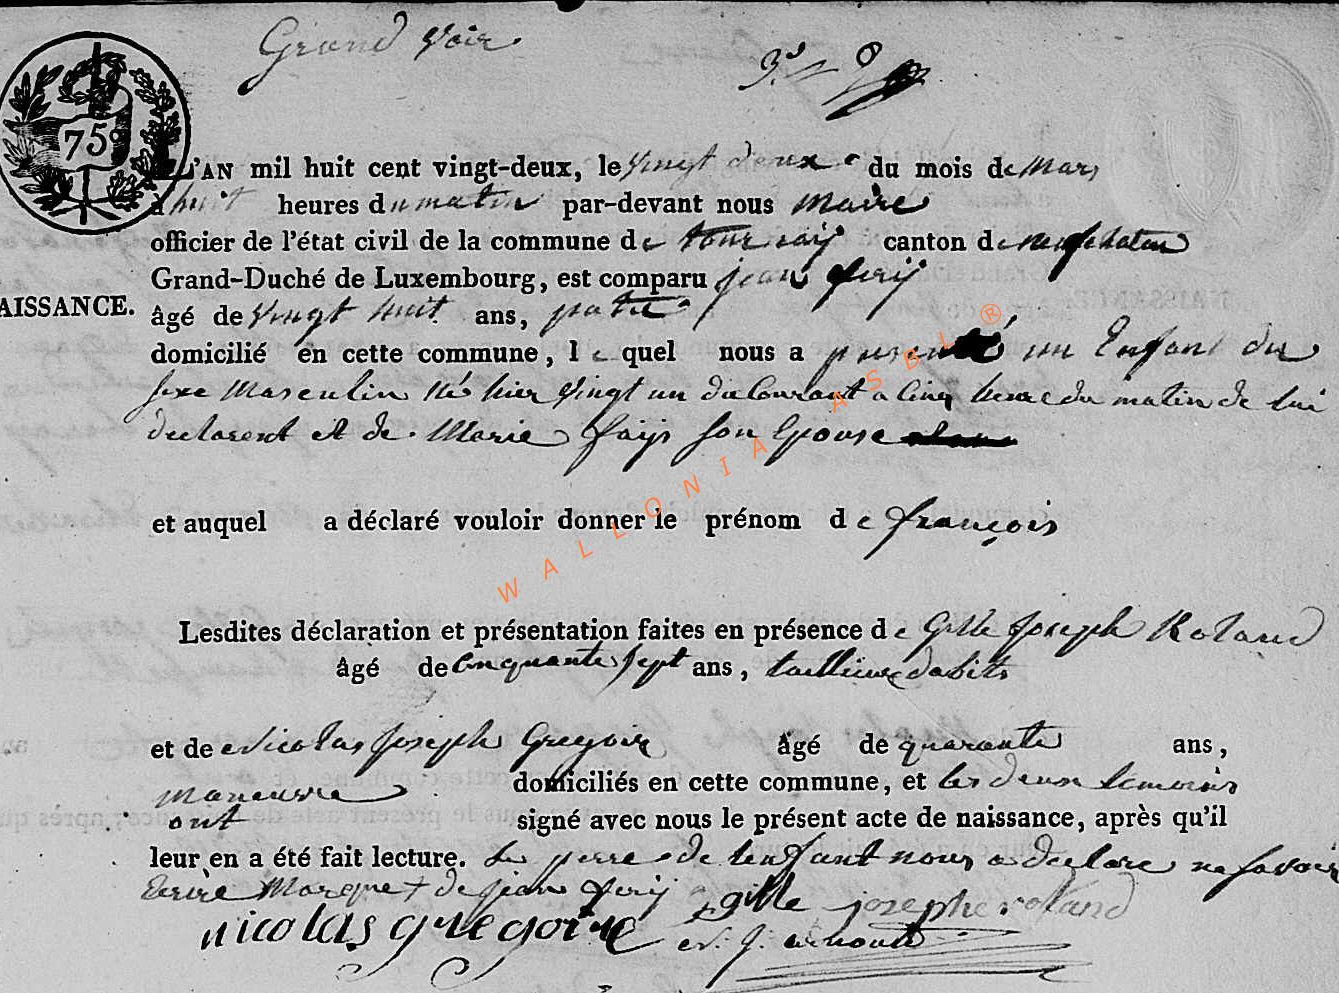 Grand Voir
75c
L'AN mil huit cent vingt-deux, le vingt deux du mois de Mars
à huit heures du matin par-devant nous Maire
officier de l'état civil de la commune de tournay canton de neufchateau
Grand-Duché de Luxembourg, est comparu jean
AISSANCE.
âgé de Vingt huit ans, patre
domicilié en cette commune, le quel nous a presenté un Enfant du
sexe Masculin Nés hier Vingt un du Courant a Cinq heure du matin de lui
declarent et de Marie fays son Epouse
et auquel a déclaré vouloir donner le prénom de françois
WALLONIA ASBL ®
Lesdites déclaration et présentation faites en présence de Gille Joseph Roland
âgé de Cinquante sept ans, tailleure dabits
et de Nicolas Joseph Gregoir âgé de quarante ans,
maneuvre domiciliés en cette commune, et les deux temoins
ont signé avec nous le présent acte de naissance, après qu'il
leur en a été fait lecture. Le perre de lenfant nous a declare ne savoir
Ecrire Marque + de jean
gille josephe roland
nicolas gregoire